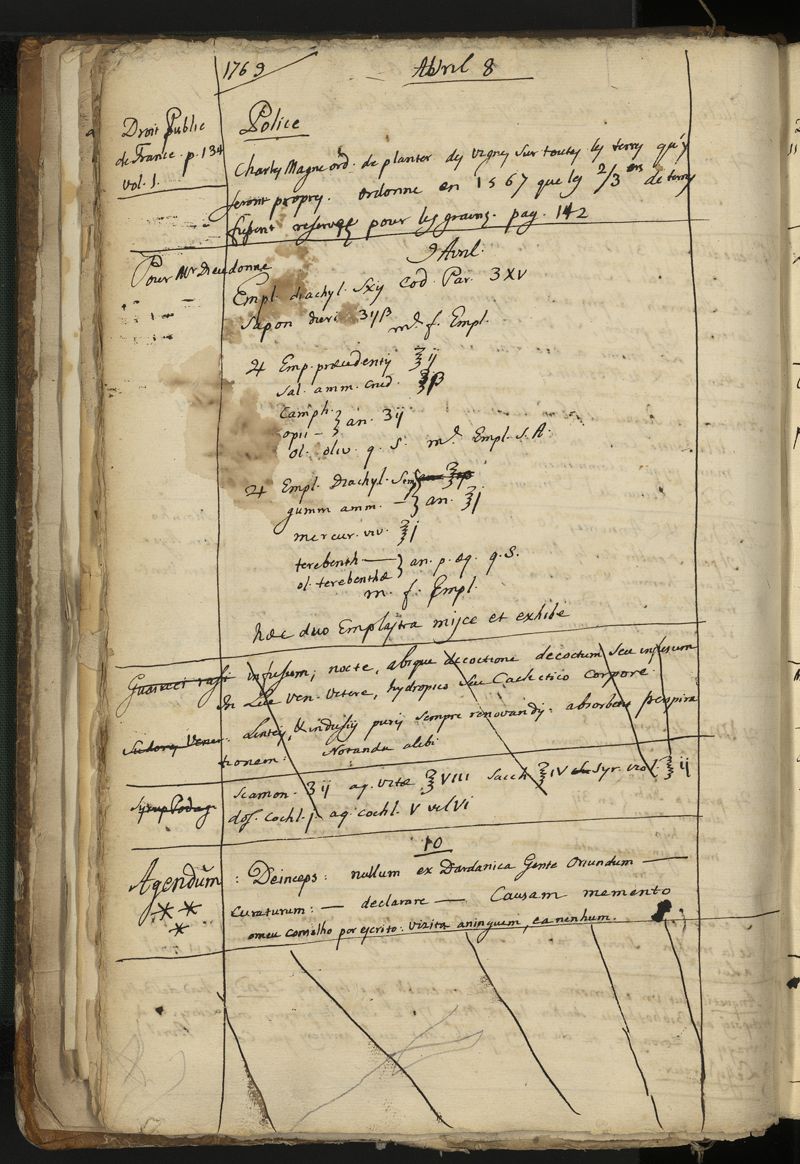 1769
Avril 8
Droit Public
de France. p. 134
vol. 1.
Police
Charles Magne ord. de planter des vignes sur toutes les terres qu'y
seront propres. ordonne en 1567 que les 2/3 ers de terres
fussent reservees pour les grains. pag. 142
Pour Mr Dieudonne
9 Avril.
Empl. diachyl. Sxij Cod. Par. ʒ XV
Sapon ʒijβ m. f. Empl.
♃ Emp. præcedentis ℥ij
Sal. amm. crud. ℥β
Camph.
opii — } an. ʒij
ol. oliv. q. S. m. Empl. S. A.
♃ Empl. Diachyl. Simp
gumm amm. — } an. ℥j
mercur. viv. ℥j
terebenth —
ol. terebenthæ } an. p. æq. q. S.
m. f. Empl.
hæc duo Emplastra misce et exhibe
Guaiaci rasi infusum; nocte, absque decoctione decoctum seu infusum
In Lue Ven. Vetere, hydropico seu Cachetico corpore
Sudores Vener. Linteis, & indusiis puris semper renovandis: absorbere perspira
tionem: Notanda alibi
Syrup Podag. Scamon. ʒij aq. vitæ ℥VIII Sacch ℥IV Syr. viol. ℥ij
dos. cochl. j. aq. cochl. V vel VI
10
Agendum : Deinceps: nullum ex Dardanica Gente Oriundum —
Curaturum: — declarare — Causam memento
o meu conselho por escrito: vizita aninguem, ea nenhum.